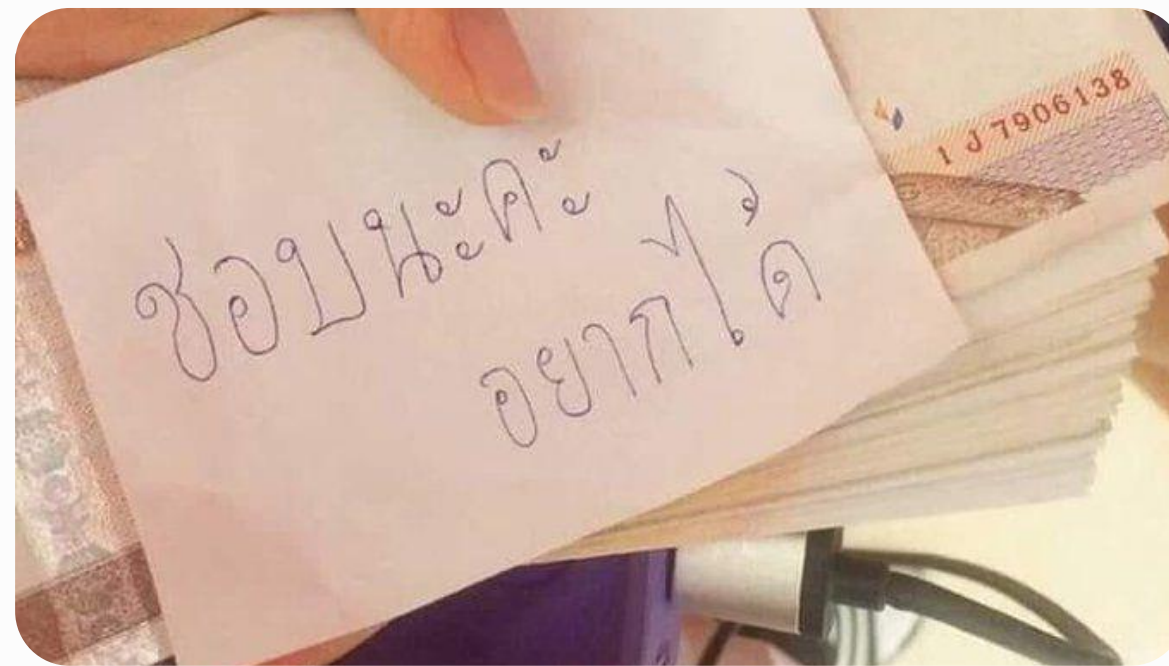 ชอบนะคะ
อยากได้
1 J 7906138